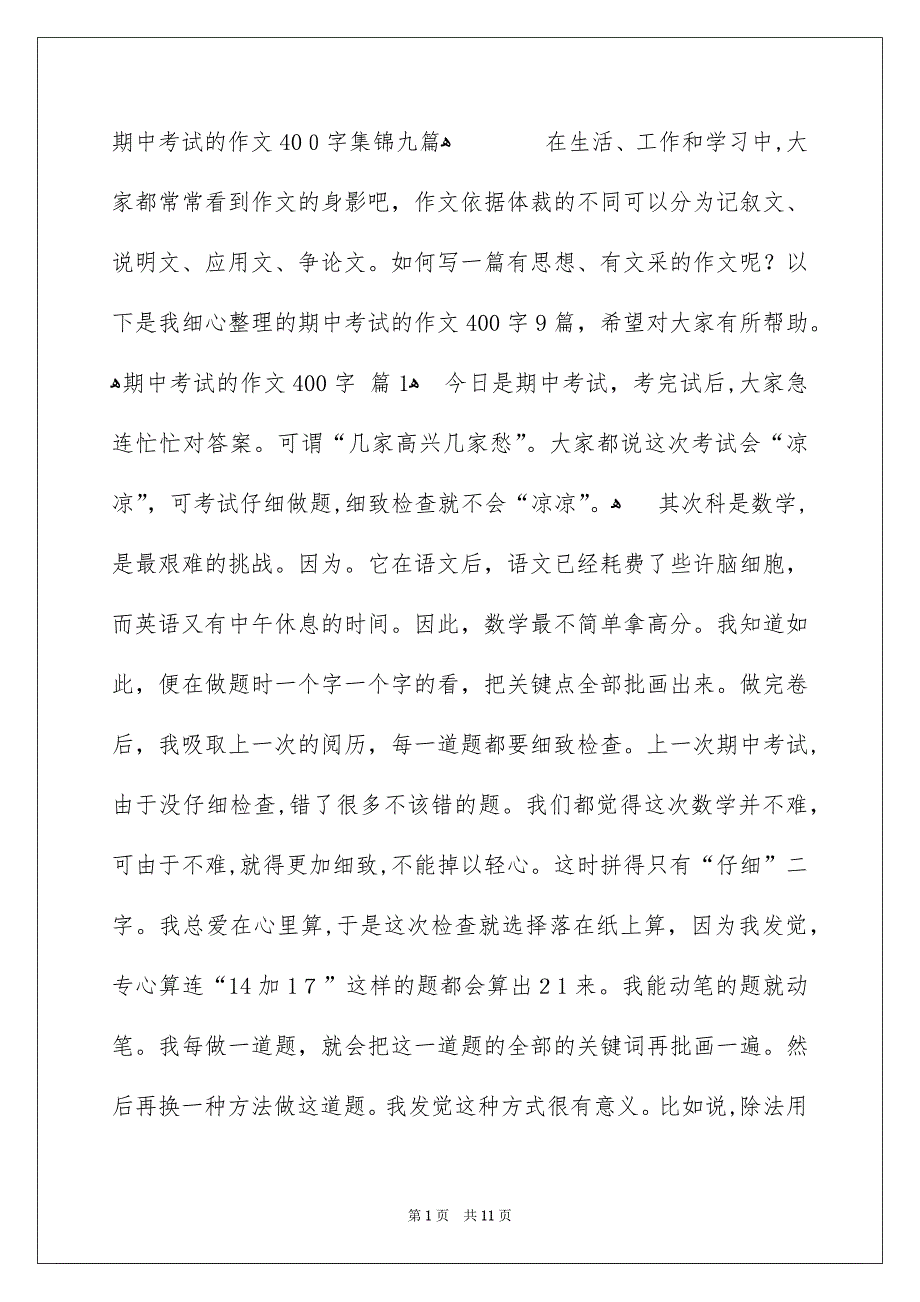 期中考试的作文400字集锦九篇ﻫ 在生活、工作和学习中,大
家都常常看到作文的身影吧，作文依据体裁的不同可以分为记叙文、
说明文、应用文、争论文。如何写一篇有思想、有文采的作文呢？以
下是我细心整理的期中考试的作文400字9篇，希望对大家有所帮助。
ﻫ期中考试的作文400字 篇1ﻫ 今日是期中考试，考完试后,大家急
连忙忙对答案。可谓“几家高兴几家愁”。大家都说这次考试会“凉
凉”，可考试仔细做题,细致检查就不会“凉凉”。ﻫ 其次科是数学,
是最艰难的挑战。因为。它在语文后，语文已经耗费了些许脑细胞，
而英语又有中午休息的时间。因此，数学最不简单拿高分。我知道如
此，便在做题时一个字一个字的看，把关键点全部批画出来。做完卷
后，我吸取上一次的阅历，每一道题都要细致检查。上一次期中考试,
由于没仔细检查,错了很多不该错的题。我们都觉得这次数学并不难,
可由于不难,就得更加细致,不能掉以轻心。这时拼得只有“仔细”二
字。我总爱在心里算,于是这次检查就选择落在纸上算，因为我发觉，
专心算连“14加17”这样的题都会算出21来。我能动笔的题就动
笔。我每做一道题，就会把这一道题的全部的关键词再批画一遍。然
后再换一种方法做这道题。我发觉这种方式很有意义。比如说,除法用
第1页 共11页